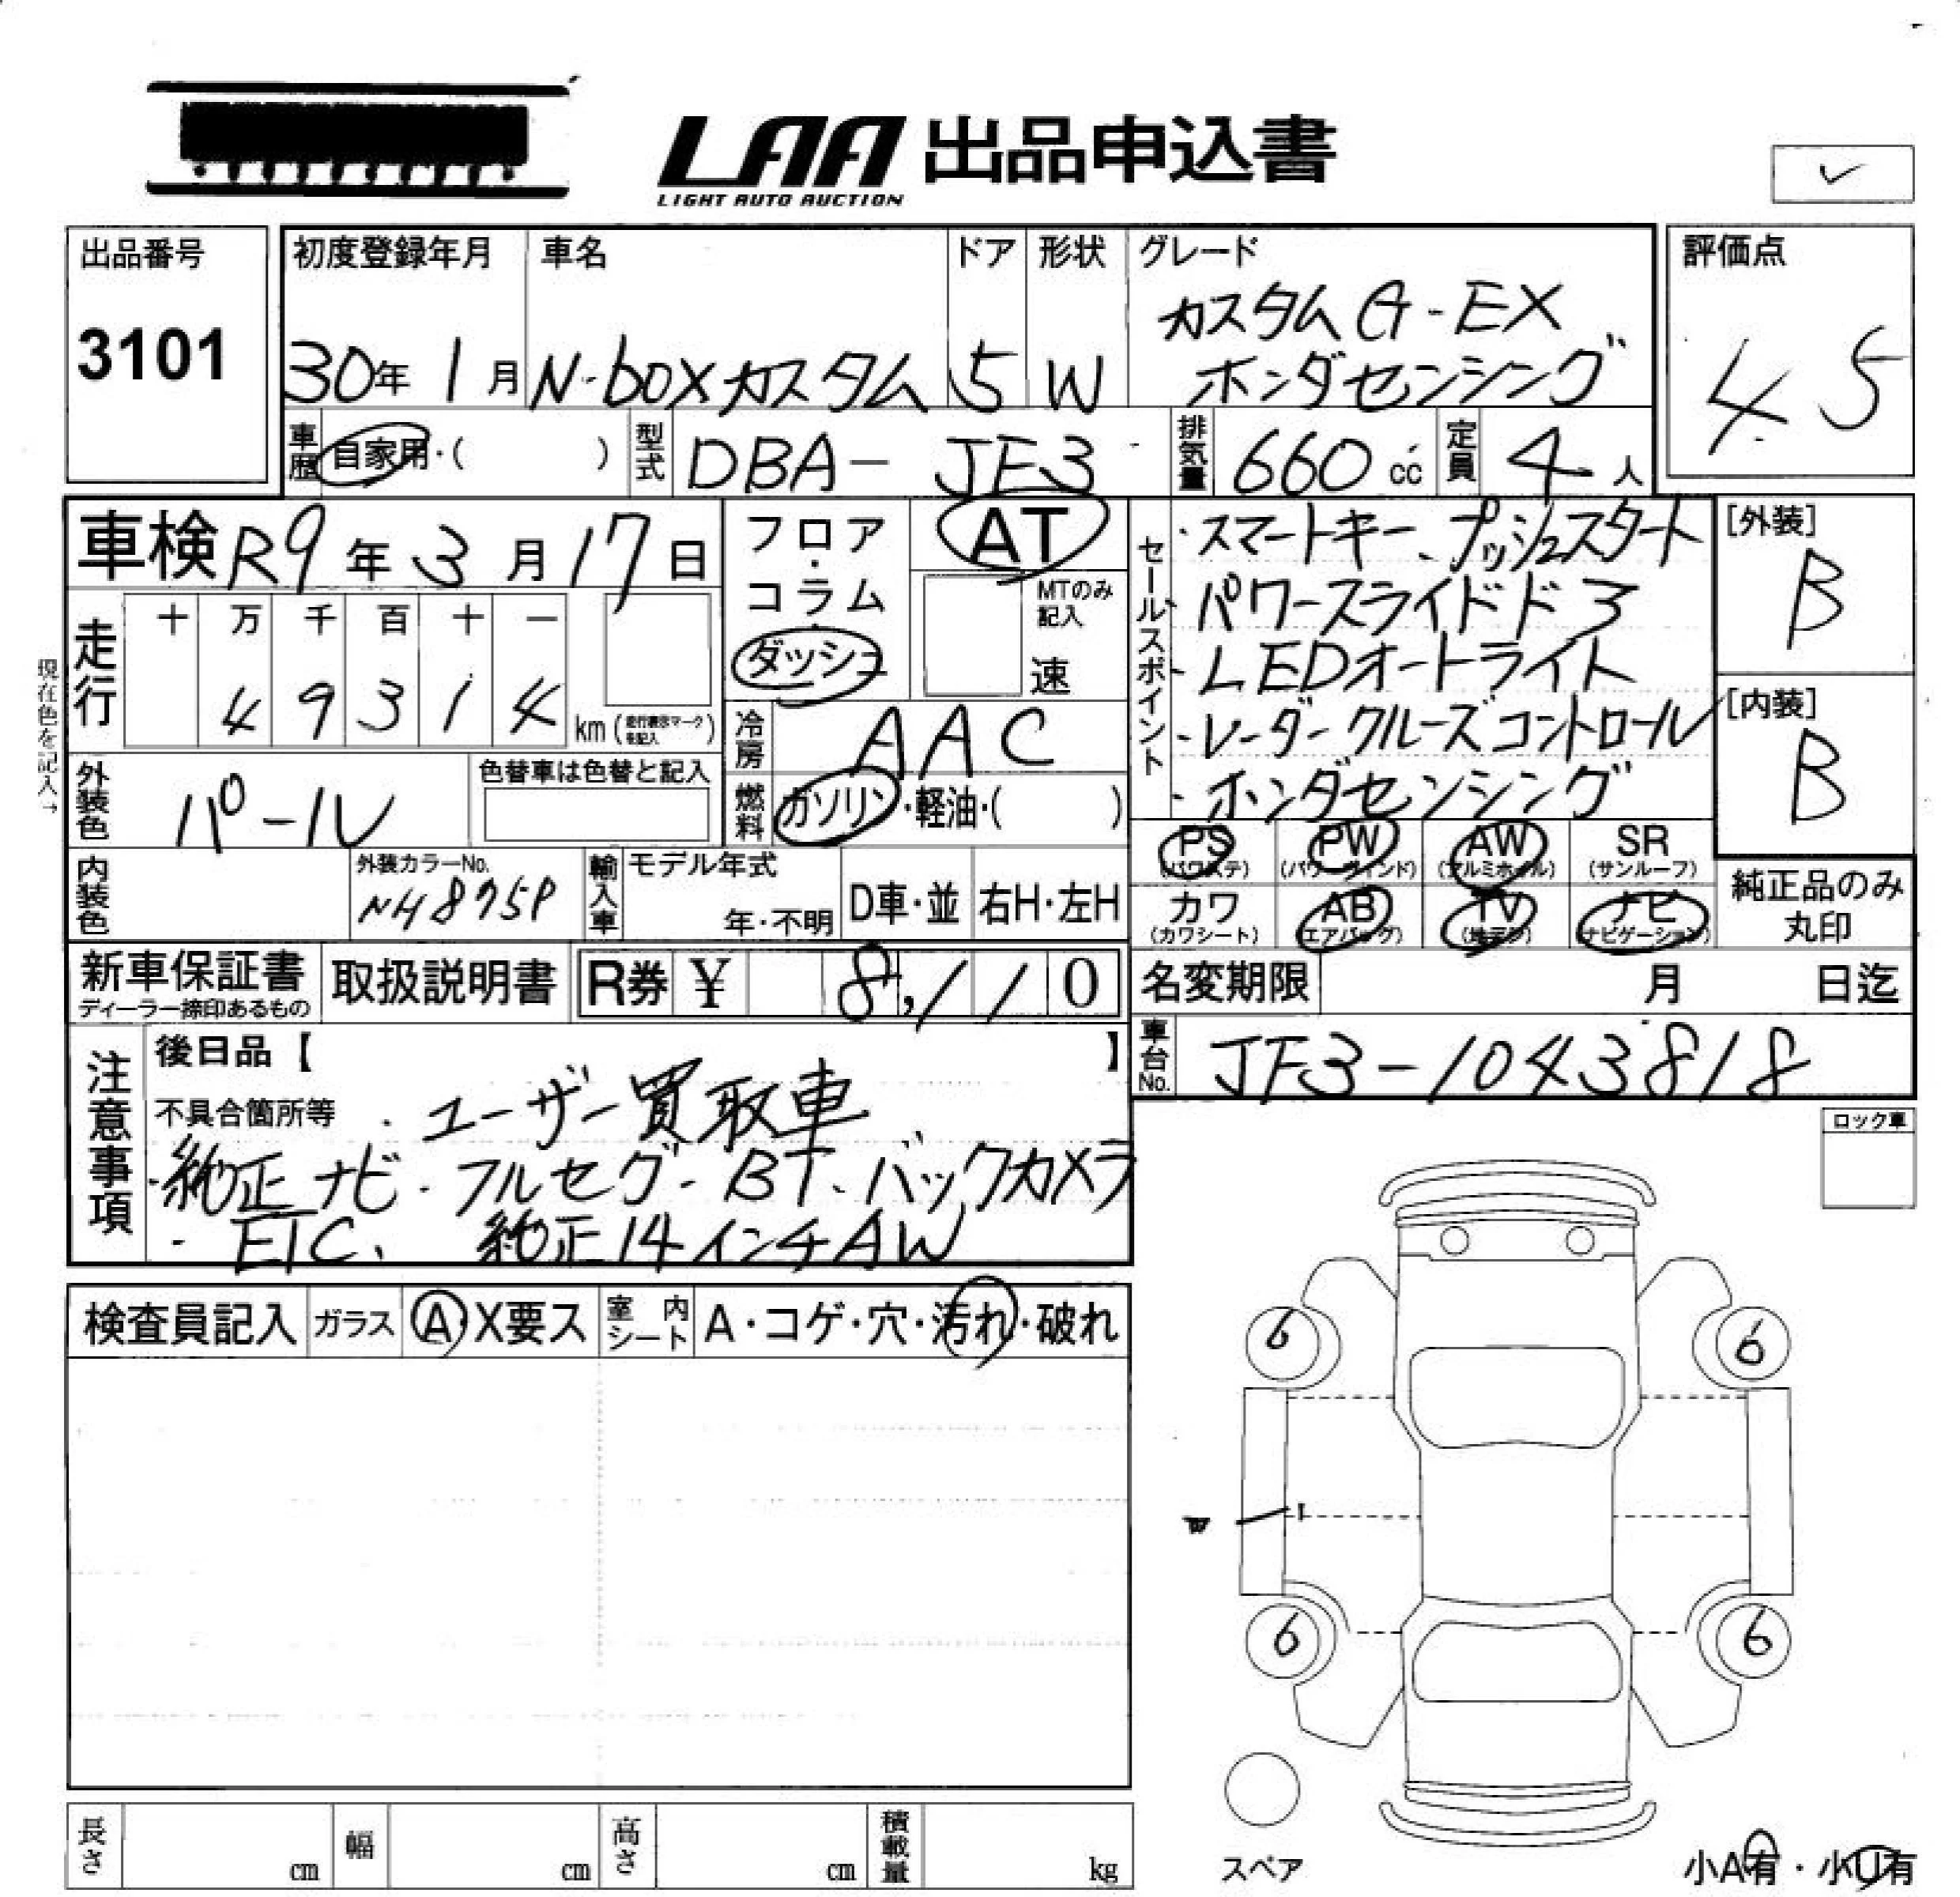 LAA 出品申込書
LIGHT AUTO AUCTION
出品番号 3101
初度登録年月 30年1月
車名 N-boxカスタム
ドア 5
形状 W
グレード カスタムG-EX
ホンダセンシング
評価点 4.5
車歴 自家用・( )
型式 DBA-JF3
排気量 660cc
定員 4人
車検 R9年3月17日
現在色を記入→
走行 十万千百十一
49314 km(走行表示マークを記入)
フロア・コラム・ダッシュ
AT
MTのみ記入
速
冷房 AAC
外装色 パール
色替車は色替と記入
燃料 ガソリン・軽油・( )
内装色
外装カラーNo. NH875P
輸入車 モデル年式 年・不明
D車・並 右H・左H
セールスポイント
・スマートキー、プッシュスタート
・パワースライドドア
・LEDオートライト
・レーダークルーズコントロール
・ホンダセンシング
[外装] B
[内装] B
PS(パワステ) PW(パワーウィンド) AW(アルミホイル) SR(サンルーフ)
カワ(カワシート) AB(エアバッグ) TV(地デジ) ナビ(ナビゲーション)
純正品のみ丸印
新車保証書
ディーラー捺印あるもの
取扱説明書
R券 ¥ 8,110
名変期限 月 日迄
車台No. JF3-1043818
注意事項
後日品【 】
不具合箇所等 ・ユーザー買取車
・純正ナビ・フルセグ・BT・バックカメラ
・ETC、純正14インチAW
ロック車
検査員記入 ガラス A X要ス 室内シート A・コゲ・穴・汚れ・破れ
6 6
W
6 6
スペア
小A有・小U有
長さ cm 幅 cm 高さ cm 積載量 kg